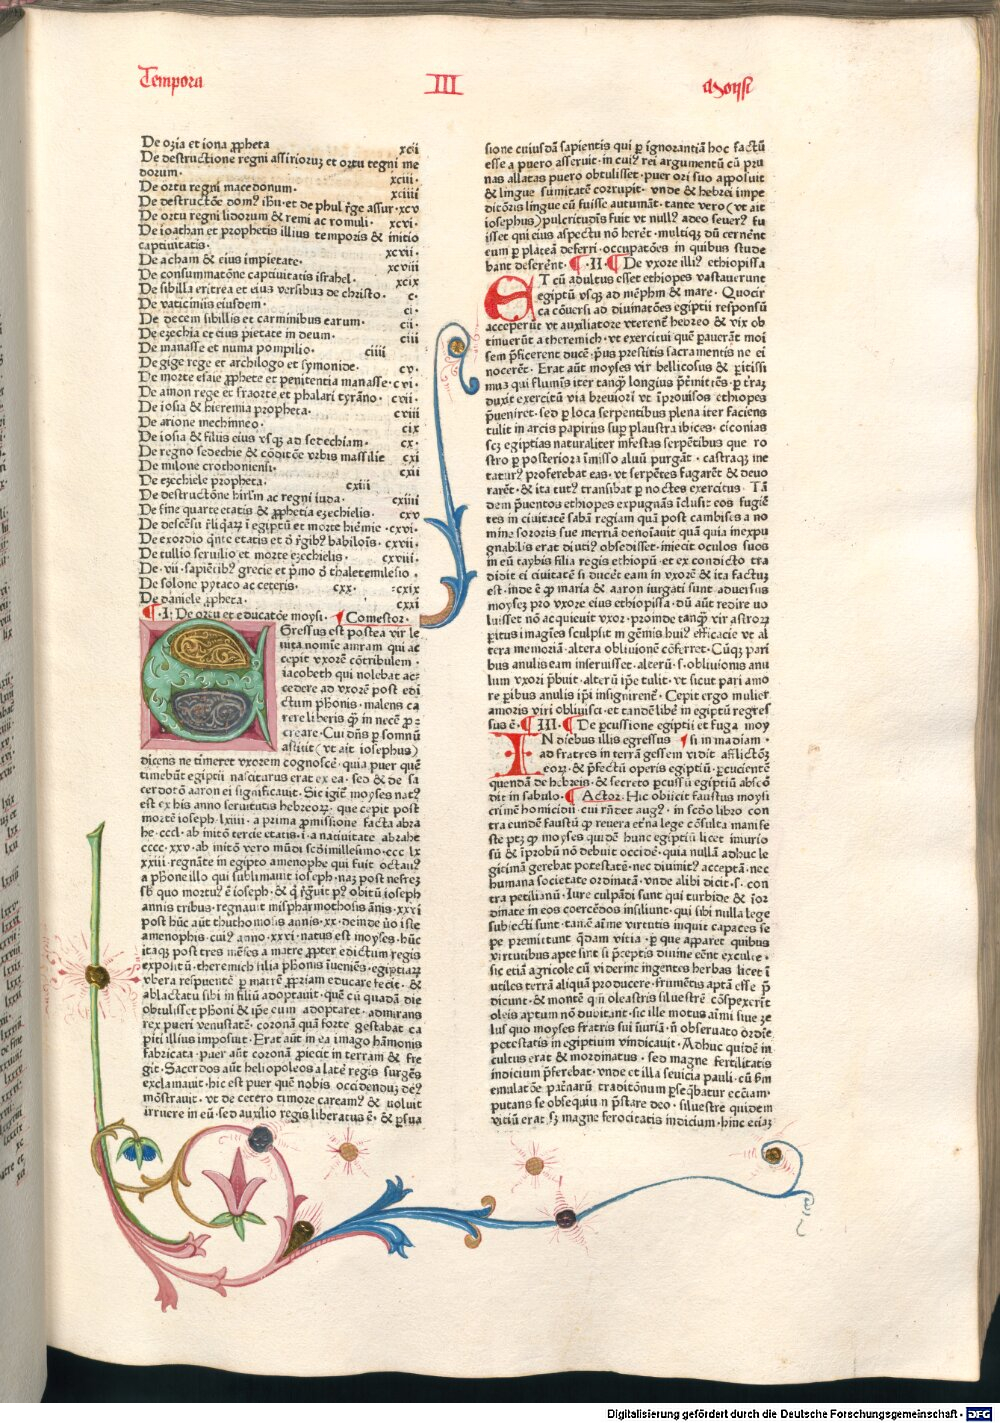 Tempora
III
Moysi
De ozia et iona ꝓpheta xcii
De destructione regni assirioruꝫ et ortu regni me
dorum· xciii·
De ortu regni macedonum· xciiii
De destructōe domꝰ ihū·et de phul rͤge assur·xcv
De ortu regni lidorum & remi ac romuli· xcvi·
De ioathan et prophetis illius temporis & initio
captiuitatis· xcvii·
De acham & eius impietate· xcviii
De consummatōne captiuitatis israhel· xcix
De sibilla eritrea et eius versibus de christo· c·
De vaticiniis eiusdem· ci·
De decem sibillis et carminibus earum· cii·
De ezechia et eius pietate in deum· ciii
De manasse et numa pompilio· ciiii
De gige rege et archilogo et symonide· cv·
De morte esaie ꝓphete et penitentia manasse·cvi·
De amon rege et fraorte et phalari tyrāno· cvii·
De iosia & hieremia propheta· cviii
De arione mechinneo· cix
De iosia & filiis eius vsqꝫ ad sedechiam· cx·
De regno sedechie & cōditōe vrbis massilie cxi
De milone crothoniensi· cxii
De ezechiele propheta· cxiii
De destructōne hirlm̄ ac regni iuda· cxiiii
De fine quarte etatis & ꝓphetia ezechielis· cxv
De descēsu r̄liqaꝝ ī egiptū et morte hiēmie ·cxvi·
De exordio qͥnte etatis et ō rͤgibꝰ babilōis· cxvii·
De tullio seruilio et morte ezechielis· cxviii·
De ·vii· sapiētibꝰ grecie et pͥmo ō thaletemilesio ·
De solone pytaco ac ceteris· cxx· :cxix
De daniele ꝓpheta· cxxi
¶ ·I· De ortu et educatōe moysi· ¶ Comestor·
EGressus est postea vir le
uita nomīe amram qui ac
cepit vxorē cōtribulem ·
iacobeth qui nolebat ac-
cedere ad vxorē post edi
ctum pħonis· malens ca
rere liberis qͣꝫ in necē ꝓ-
creare· Cui dn̄s ꝑ somnū
astitit (vt ait iosephus)
dicens ne timeret vxorem cognoscē· quia puer quē
timebūt egiptii nasciturus erat ex ea· sed & de sa
cerdotō aaron ei significauit· Sic igit̄ moyses natꝰ
est ex his anno seruitutis hebreoꝝ· que cepit post
mortē ioseph·lxiiii· a prima ꝓmissione facta abra
he·cccl· ab initō tercie etatis·i·a natiuitate abrahe
cccc·xxv·ab initō vero mūdi scd̄imillesimo·ccc lx
xxiii·regnāte in egipto amenophe qui fuit octauꝰ
a pħone illo qui sublimauit ioseph·naꝫ post nefreꝫ
sb̄ quo mortuꝰ ē ioseph·& qͥ rͤḡuit pꝰ obitū ioseph
annis tribus·regnauit mispharmothosis ānis·xxvi
post hūc aūt thuthomosis annis·xx·deinde ūo iste
amenophis·cuiꝰ anno·xxvi·natus est moyses·hūc
itaqꝫ post tres mēses a matre ꝓpter edictum regis
expositū·theremich filia pħonis īueniēs·egiptiaꝝ
vbera respuentē ꝑ matrē ꝓpriam educare fecit·&
ablactatū sibi in filiū adoptauit·quē cū quadā die
obtulisset pħoni & ip̄e eum adoptaret·admirans
rex pueri venustatē·coronā quā forte gestabat ca
piti illius imposuit·Erat aūt in ea imago hāmonis
fabricata·puer aūt coronā ꝓiecit in terram & fre
git·Sacerdos aūt heliopoleos a latē regis surgēs
exclamauit·hic est puer quē nobis occidenduꝫ deꝰ
mōstrauit·vt de cetero timore caream?·& voluit
irruere in eū·sed auxilio regis liberatus ē·& ꝑsua
sione cuiusdā sapientis qui ꝑ ignorantiā hoc factū
esse a puero asseruit·in cuiꝰ rei argumentū cū pru
nas allatas puero obtulisset·puer ori suo apposuit
& lingue sumitatē corrupit·vnde & hebrei impe
ditōris lingue eū fuisse autumāt·tante vero (vt ait
iosephus) pulcritudis fuit vt nullꝰ adeo seuerꝰ fu
isset qui eius aspectu nō herēt·multiqꝫ dū cernēnt
eum ꝑ plateā deferri·occupatōes in quibus stude
bant deserēnt·¶·II·¶ De vxore illiꝰ ethiopissa
ET cū adultus esset ethiopes vastauerunt
egiptū vsqꝫ ad mēphm & mare· Quocir
ca cōuersi ad diuinatōes egiptii responsū
acceperūt vt auxiliatore vterent̄ hebreo & vix ob
tinuerūt a theremich·vt exercitui que pauerāt moi
sem pͥficerent ducē·pͥus prestitis sacramentis ne ei
nocerēt·Erat aūt moyses vir bellicosus & pͥitissi
mus qui fluminis iter tanqͣꝫ longius pͥtmitr̄es·ꝑ traꝫ
duxit exercitū via breuiori vt īprouisos ethiopes
pͥueniret·sed ꝑ loca serpentibus plena iter faciens
tulit in arcis papiriis suꝑ plaustra ibices·ciconias
scꝫ egiptias naturaliter īnfestas serpētibus que ro
stro ꝑ posteriora īmisso aluū purgāt·castraqꝫ me
taturꝰ proferebat eas·vt serpētes fugarēt & deuo
rarēt·& ita tutꝰ transibat ꝑ noctes exercitus·Tā
dem pͥuentos ethiopes expugnās īclusit eos fugiē
tes in ciuitatē sabā regiam quā post cambises a no
mine sororis sue merriā denoīauit quā quia inexpu
gnabilis erat diutiꝰ obsedisset·iniecit oculos suos
in eū taybis filia regis ethiopū·et ex condicto tra
didit ei ciuitatē si ducēt eam in vxorē & ita factuꝫ
est·inde ē qͩ maria & aaron iurgati sunt aduersus
moysez pro vxore eius ethiopissa·dū aūt redire vo
luisset nō acquieuit vxor·proinde tanqͣꝫ vir astroꝝ
pͥitus imagīes sculpsit in gēmis huiꝰ efficacie vt al
tera memoriā·altera obliuionē cōferret·Cūqꝫ pari
bus anulis eam inseruisset·alterū·s·obliuionis anu
lum vxori pͥbuit·alterū ip̄e tulit·vt sicut pari amo
re pͥibus anulis ip̄i insignirent̄·Cepit ergo mulier
amoris viri obliuisci·et tandē libē in egiptū regres
sus ē·¶ III·¶ De ꝑcussione egiptii et fuga moy
IN diebus illis egressus ¶ si in madiam·
ad fratres in terrā gessem vidit afflictōꝫ
eoꝝ·& pͥfectū operis egiptiū·ꝑcucientē
quendā de hebreis·& secreto ꝑcussū egiptiū abscō
dit in sabulo·¶ Actor·Hic obiicit faustus moysi
crimē homicidii cui rn̄det augꝰ·in scd̄o libro con
tra eundē faustū qͩ reuera et̄na lege cōsulta manife
ste ptꝫ qͩ moyses quidē hunc egiptiū licet iniurio
sū & īprobū nō debuit occidē·quia nullā adhuc le
gicimā gerebat potestatē·nec diuinitꝰ acceptā·nec
humana societate ordinatā·vnde alibi dicit·s·con
tra petilianū·Iure culpādi sunt qui turbide & īor
dinate in eos coercēdos insiliunt·qui sibi nulla lege
subiecti sunt·tan̄e āīme virtutis inquit capaces se
pe premittunt qͣdam vitia·ꝑ que apparet quibus
virtutibus apte sint si pͥceptis diuine eēnt exculte·
sic etiā agricole cū viderint ingentes herbas licet ī
utiles terrā aliquā producere·frumētis aptā esse pͥ
dicunt·& montē qui oleastris siluestrē cōspexerīt
oleis aptum nō dubitant·sic ille motus aīmi siue ze
lus quo moyses fratris sui iīuriā·ñ obseruato ordīe
potestatis in egiptium vindicauit·Adhuc quidē in
cultus erat & inordinatus·sed magne fertilitatis
indicium pͥferebat·vnde et illa seuicia pauli·cū scd̄m
emulatōē patēnarū traditōnum ꝑseqͣbatur ecc̄iam·
putans se obsequiū ñ pͥstare deo·siluestre quidem
vitiū erat sꝫ magne ferocitatis indicium·hinc etiaꝫ
Digitalisierung gefördert durch die Deutsche Forschungsgemeinschaft - DFG